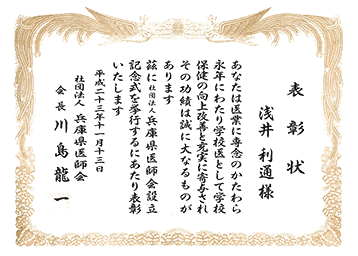 表彰状
浅井利通様
あなたは医業に専念のかたわら
永年にわたり学校医として学校
保健の向上改善と充実に寄与され
その功績は誠に大なるものが
あります
茲に社団法人兵庫県医師会設立
記念式を挙行するにあたり表彰
いたします
平成二十三年十一月十三日
社団法人 兵庫県医師会
会長 川島龍一